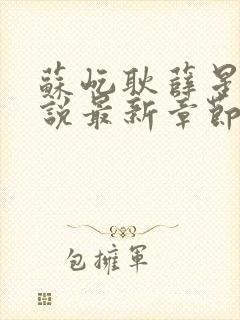 蘇屹耿薛星
說最新章節
包擁軍